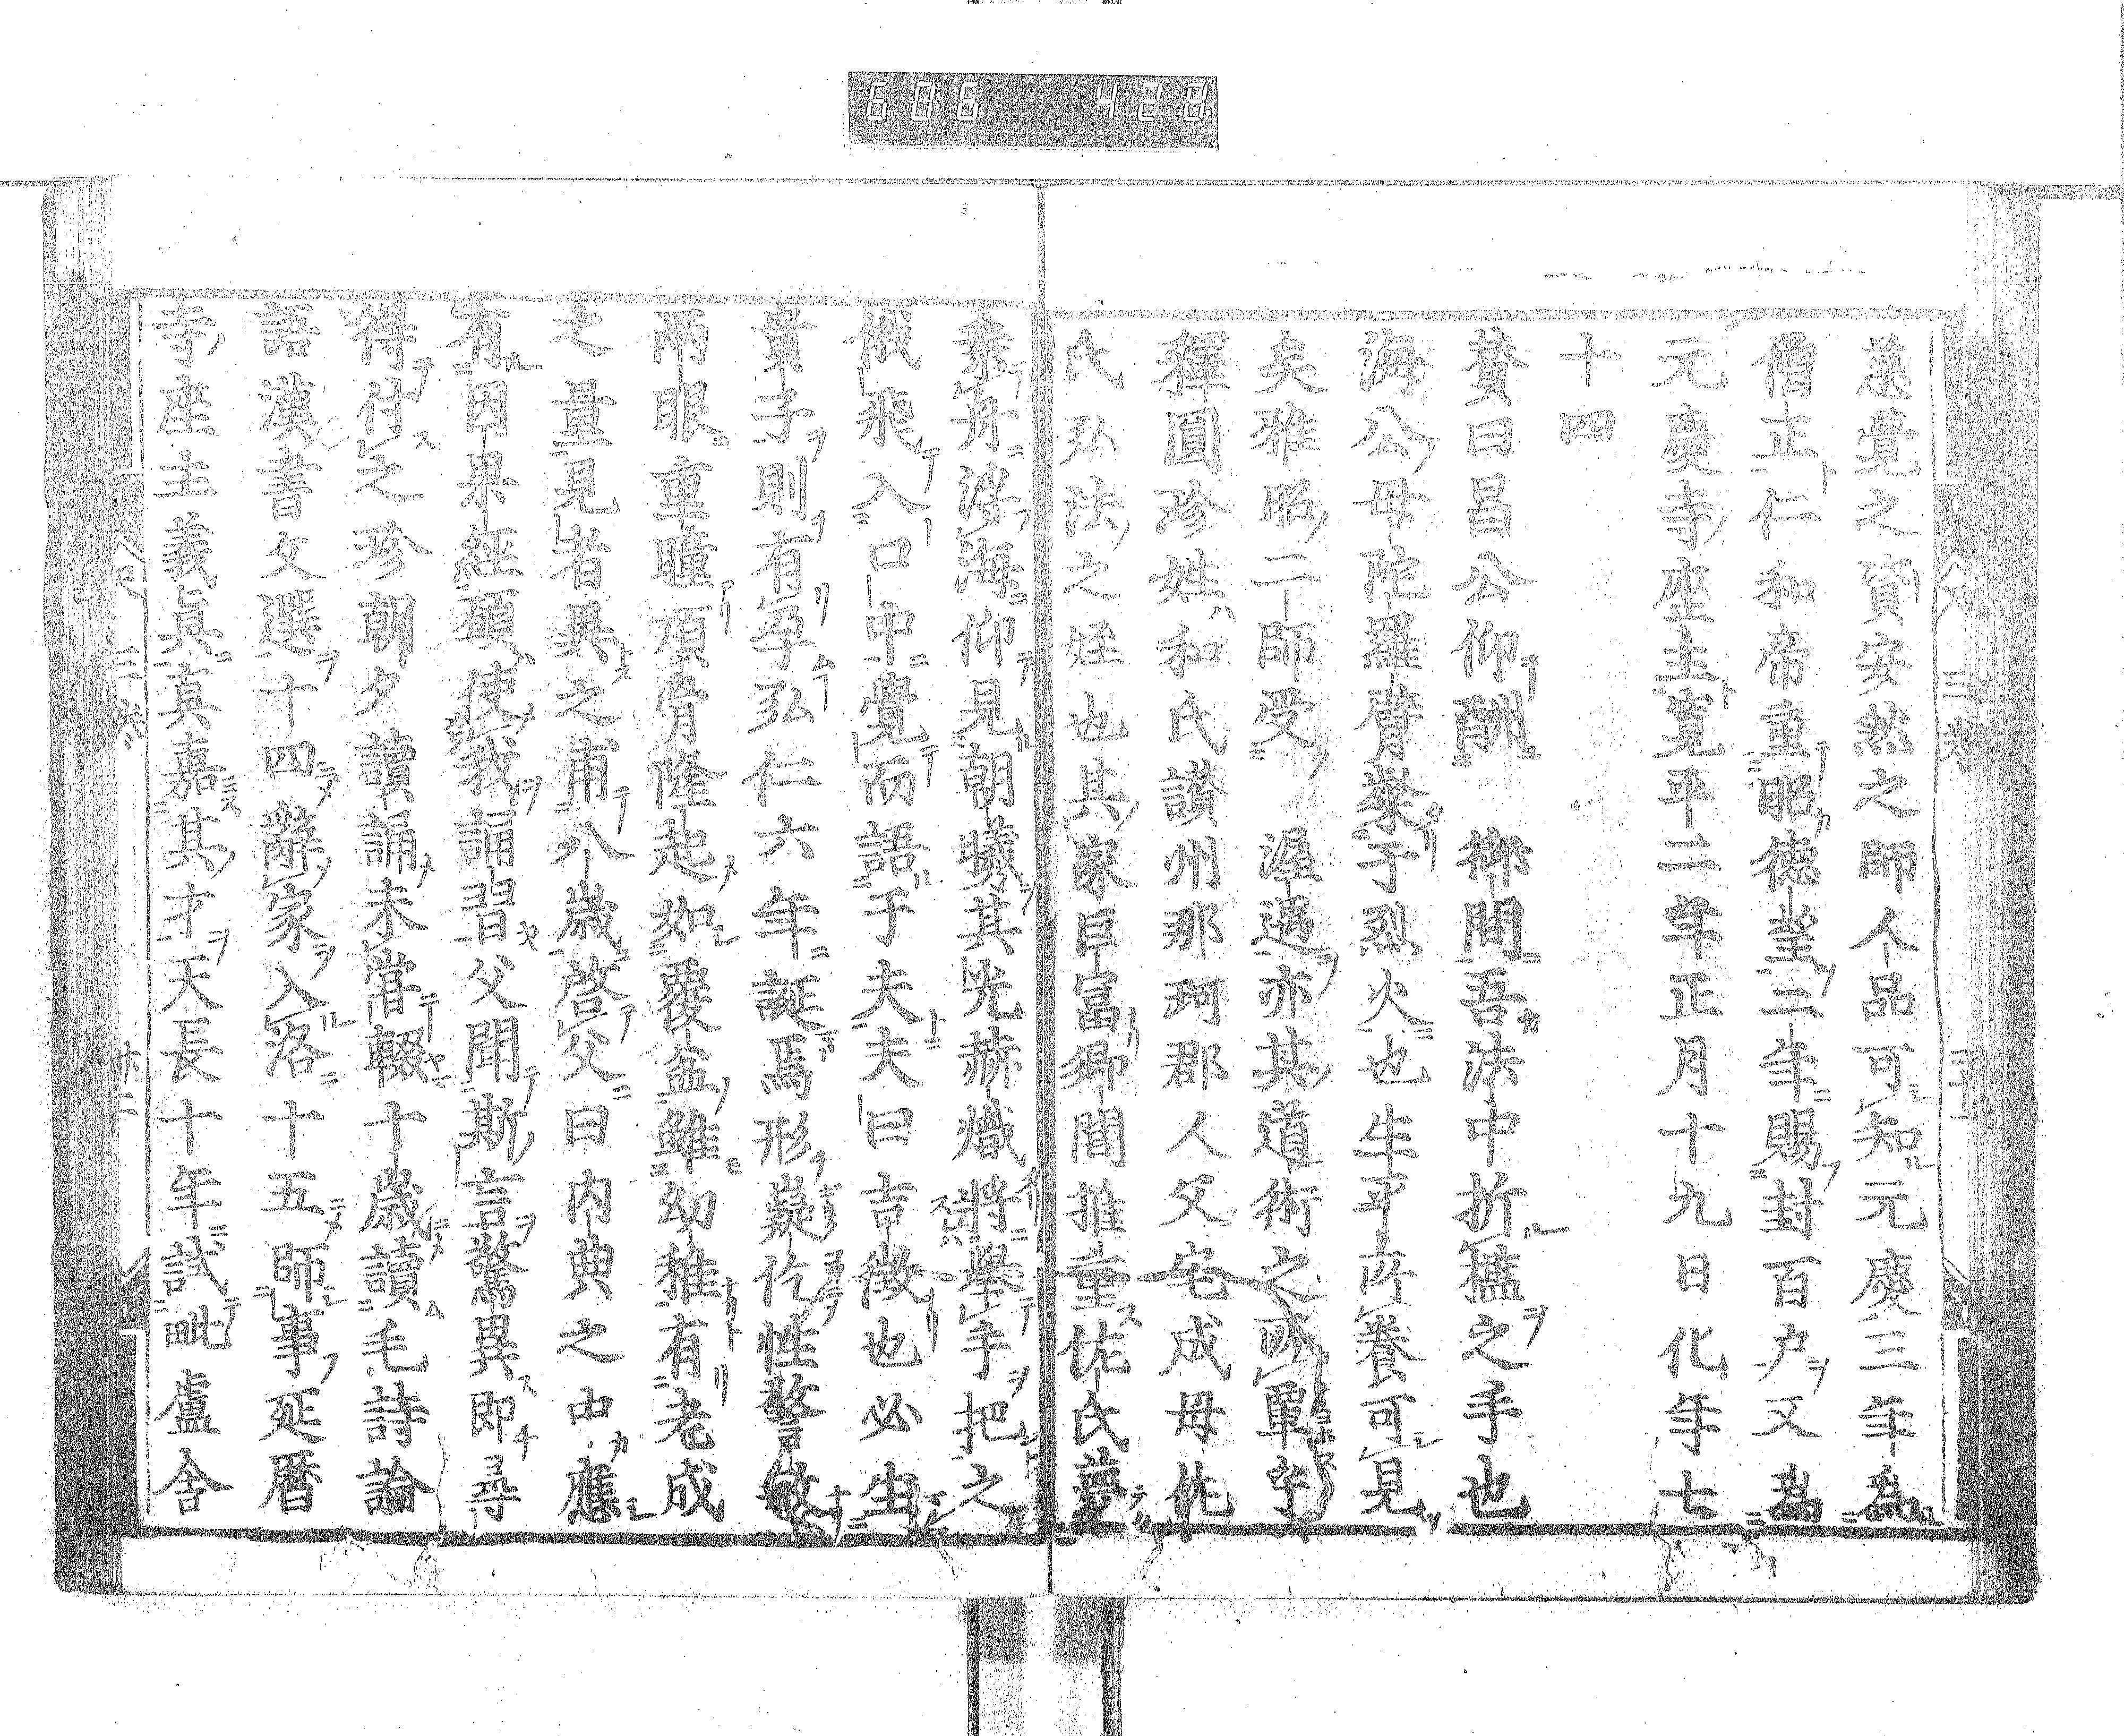 606 428
慈覺之資安然之師人品可知元慶三年為
僧正仁和帝重昭德望二年賜封百户又為
元慶寺座主寬平二年正月十九日化年七
十四
賛曰昌公仰酬 御問吾法中折攂之手也
海公毋陀羅臂檠于烈火也生平所養可見
矣雅昭二師受 渥遇亦其道術之所覃乎
釋圓珍姓和氏讃州那珂郡人父宅成母佐
氏弘法之姪也其家巨富鄉閭推重佐氏夢
乘舟浮海仰見朝曦其光赫熾將舉手把之
俄飛入口中覺而語于夫夫曰吉徵也必生
貴子則有孕弘仁六年誕焉形嶷仡性警敏
兩眼重瞳頂骨隆起如覆盆雖幼稚有老成
之量見者異之甫八歲啓父曰内典之中應
有因果經願使我誦習父聞斯言驚異即尋
得付之珍朝夕讀誦未甞輟十歲讀毛詩論
語漢書文選十四辭家入洛十五師事延曆
寺座主義真真嘉其才天長十年試毗盧舍